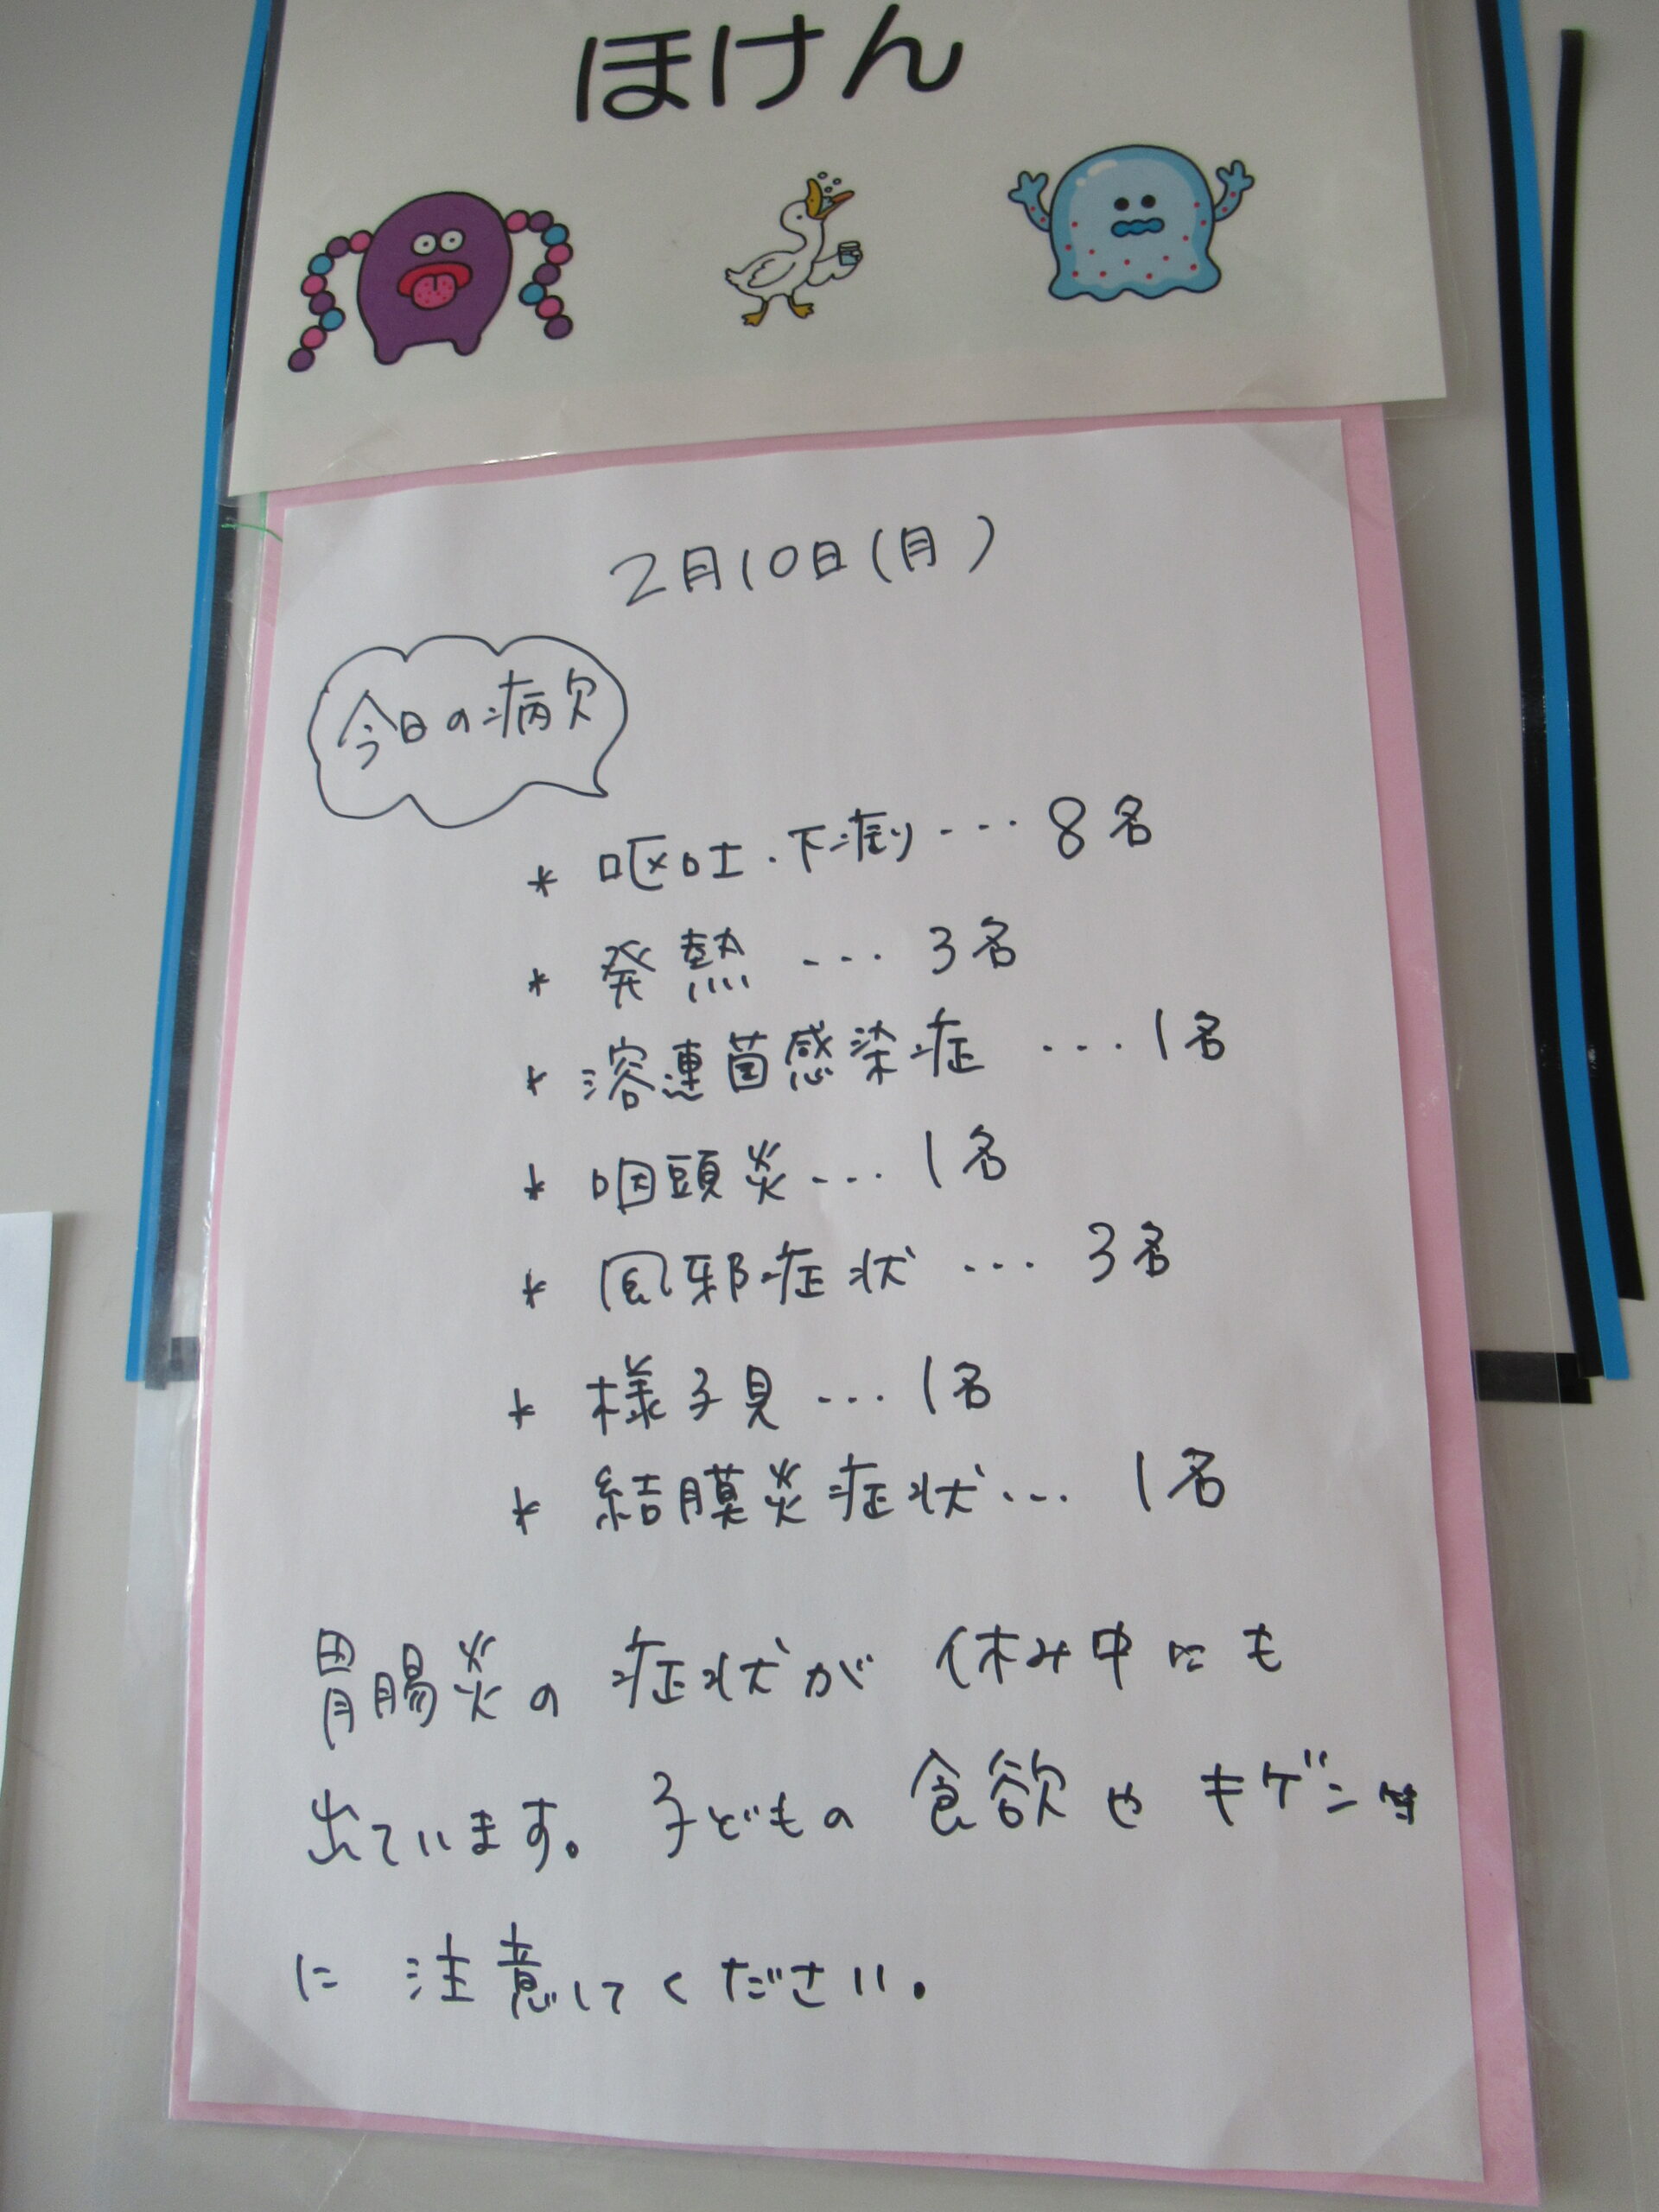 ほけん
2月10日(月)
今日の病欠
* 呕吐・下痢 ・・・ 8名
* 発熱 ・・・ 3名
* 溶連菌感染症 ・・・ 1名
* 咽頭炎 ・・・ 1名
* 風邪症状 ・・・ 3名
* 様子見 ・・・ 1名
* 結膜炎症状 ・・・ 1名
胃腸炎の症状が休み中にも
出ています。子どもの食欲やキゲン等
に注意してください。